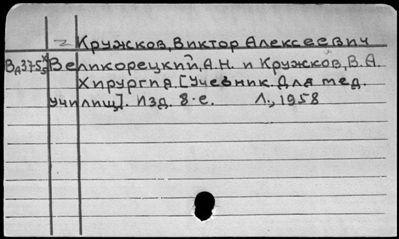 Кружков, Виктор Алексеевич
Великорецкий, А.Н. и Кружков, В.А.
Хирургия [Учебник для мед.
училищ]. Изд. 8-е. Л., 1958